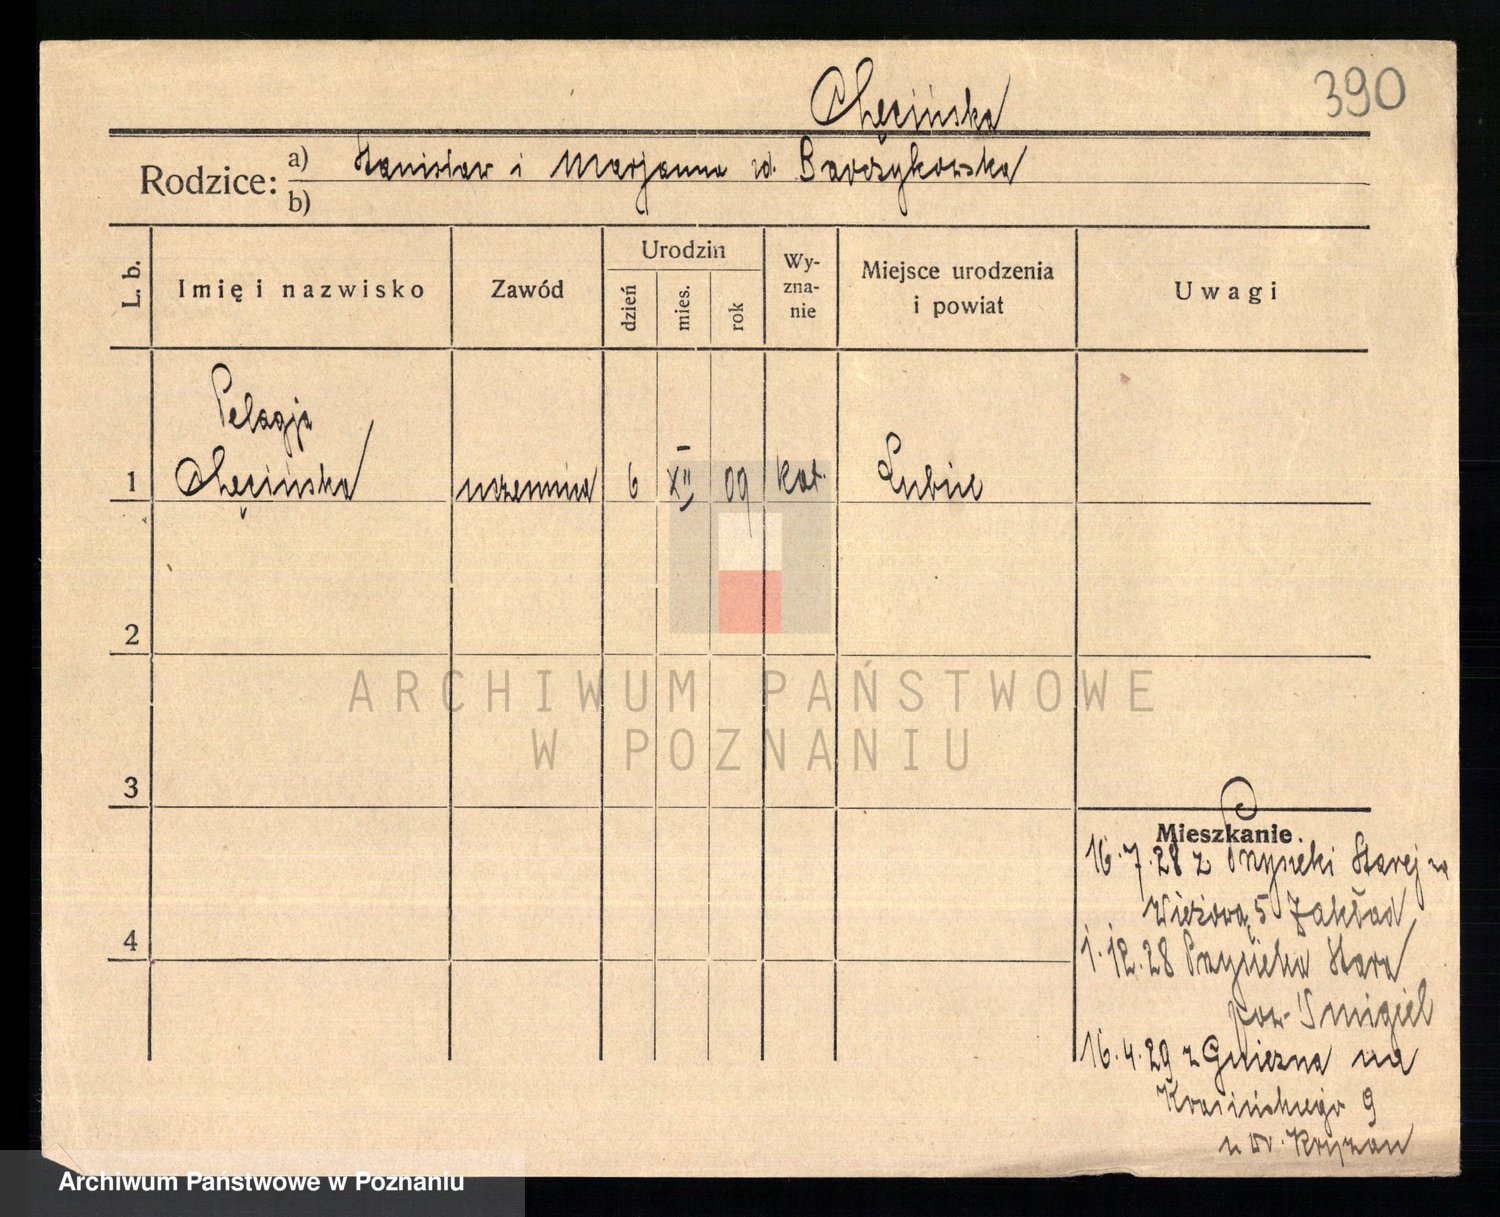 390
Chęcińska
Rodzice:
a) Stanisław i Marjanna zd. Barczykowska
b)
L. b.
Imię i nazwisko
Zawód
Urodzin
dzień
mies.
rok
Wy-
zna-
nie
Miejsce urodzenia
i powiat
Uwagi
Pelagja
1 Chęcińska uczennica 6 XII 09 kat. Lubin
2
3
4
ARCHIWUM PAŃSTWOWE
W POZNANIU
Mieszkanie.
16.7.28 z Przysieki Starej na
Wieżową 5 Zakład
1.12.28 Przysieka Stara
pow. Śmigiel
16.4.29 z Gniezna na
Krasińskiego 9
u Dr. Kryzan
Archiwum Państwowe w Poznaniu